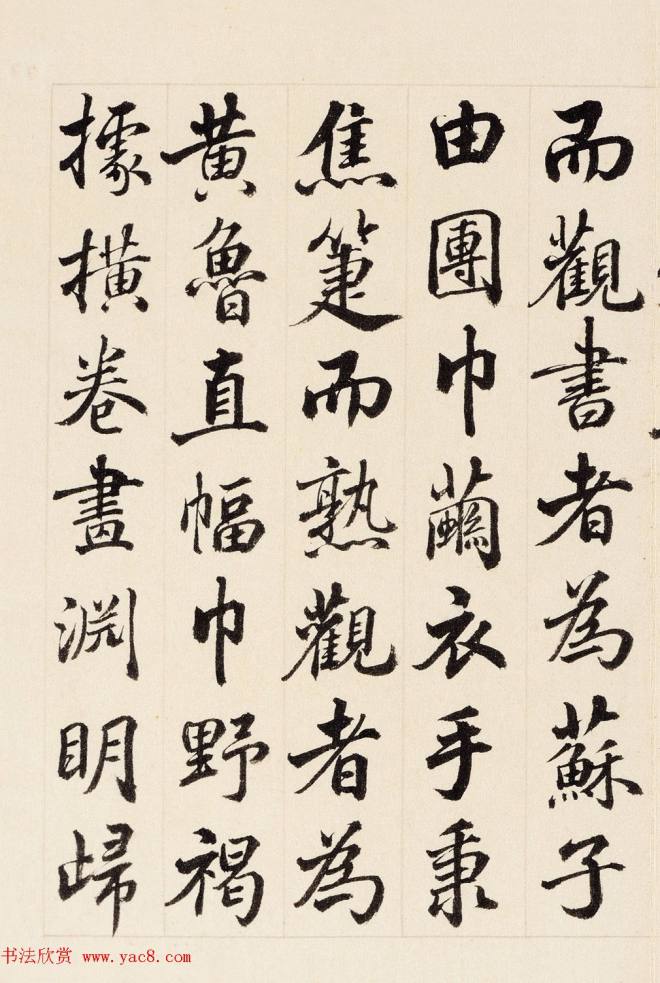 而觀書者為蘇子
由團巾繭衣手秉
焦箑而熟觀者為
黃魯直幅巾野褐
據橫卷畫淵明歸
书法欣赏 www.yac8.com